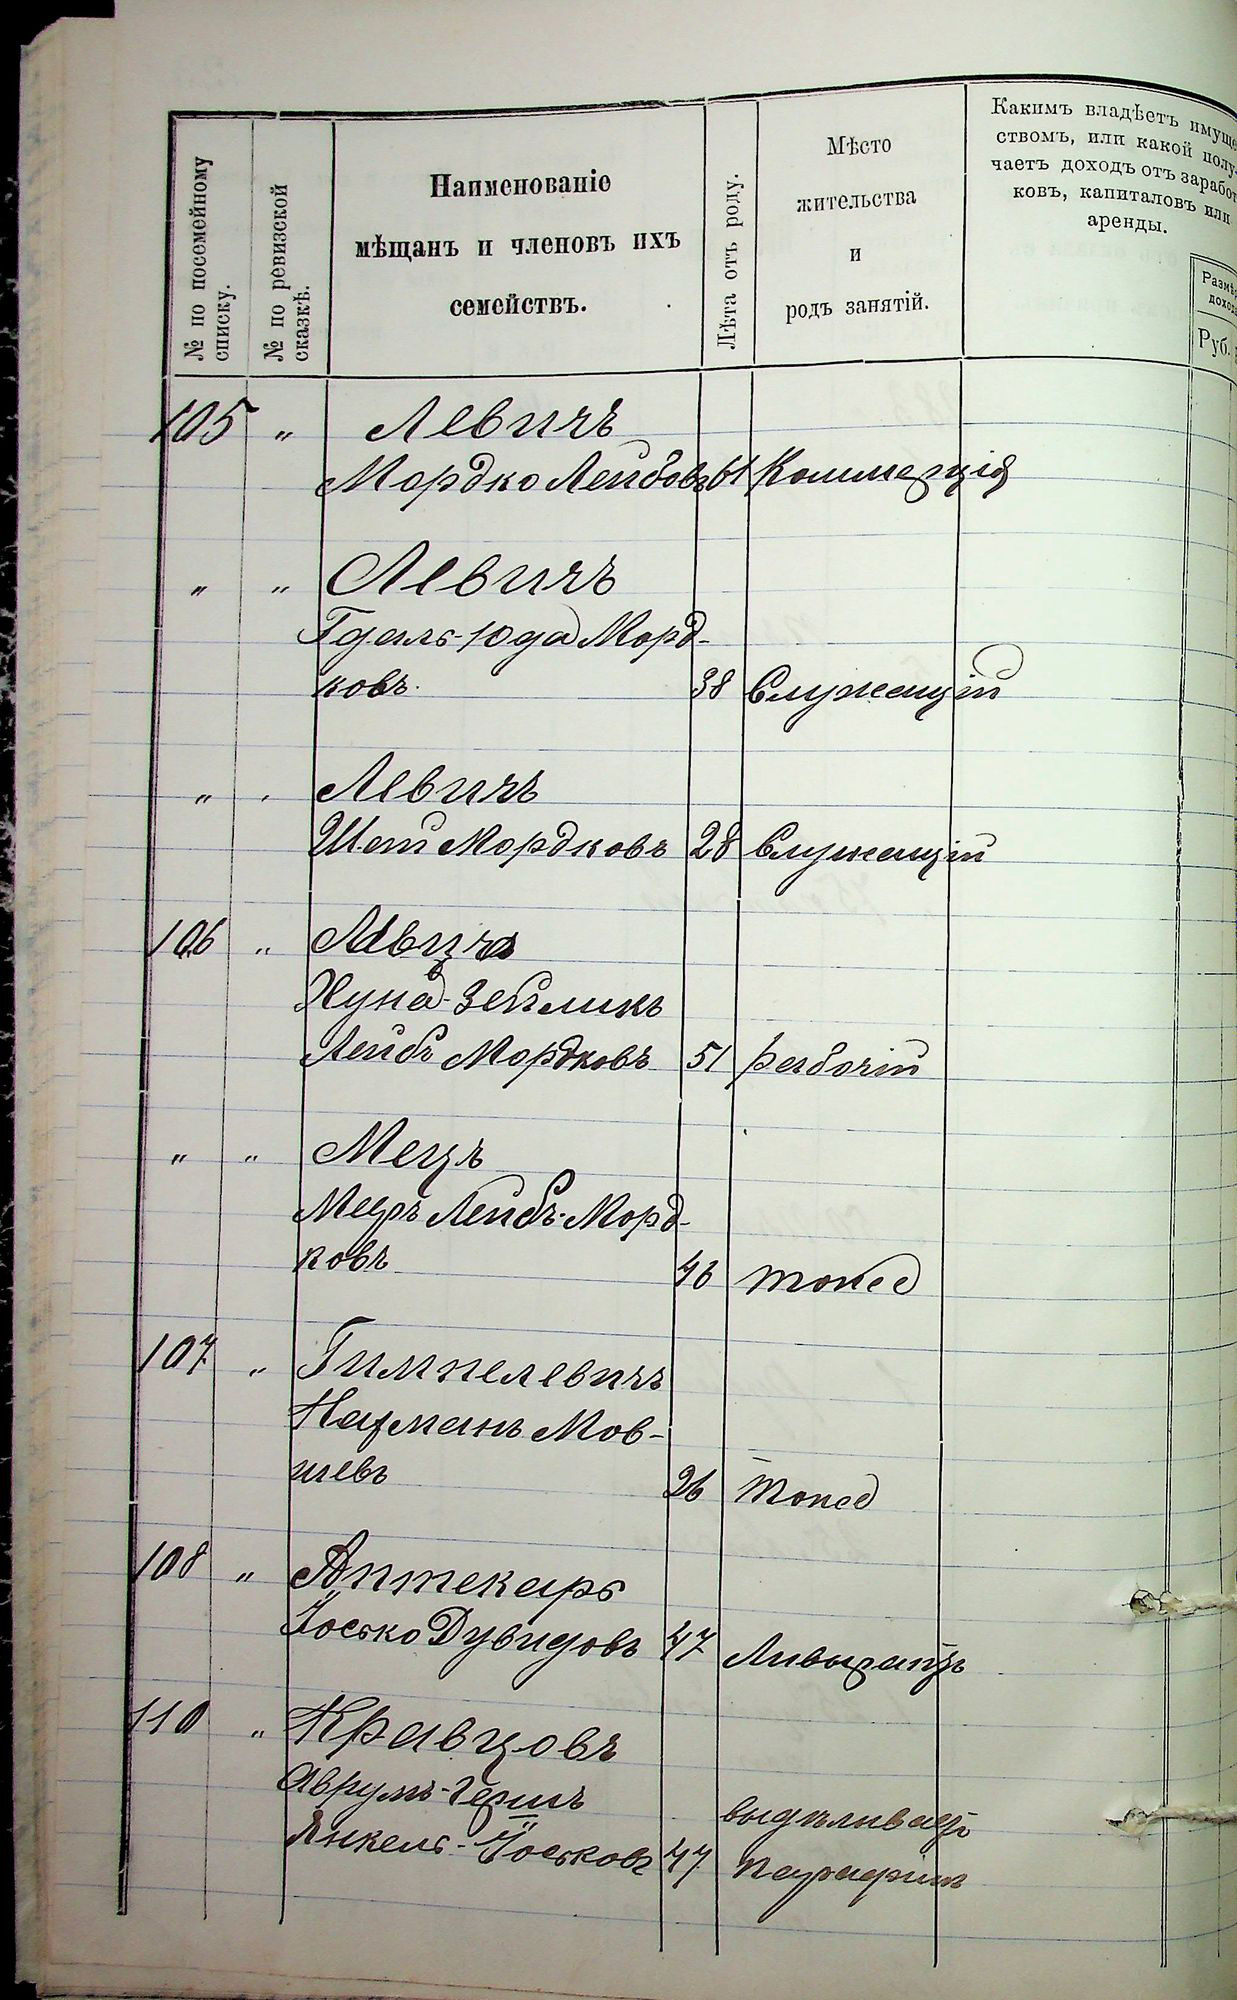 № по посемейному
списку.
№ по ревизской
сказкѣ.
Наименованіе
мѣщанъ и членовъ ихъ
семействъ.
Лѣта отъ роду.
Мѣсто
жительства
и
родъ занятій.
Какимъ владѣетъ имуще
ствомъ, или какой полу-
чаетъ доходъ отъ заработ
ковъ, капиталовъ или
аренды.
Размѣр
дохода
Руб.
105 „ Левичъ
Мордко Лейбовъ 61 Коммерція
„ „ Левичъ
Гдаль-Юда Морд-
ковъ. 38 Служащій
„ Левичъ
Мордковъ 28 Служащій
106 „
Лейбъ Мордковъ 51 рабочій
„ „ Мецъ
Лейбъ-Морд-
ковъ 46 тоже
107 „ Гимпелевичъ
Нахманъ Мов-
шевъ 26 тоже
108 „ Аптекарь
Іосько Дувидовъ 47
110 „ Кравцовъ
Аврумъ-Герш
Янкель-Іоськовъ 47